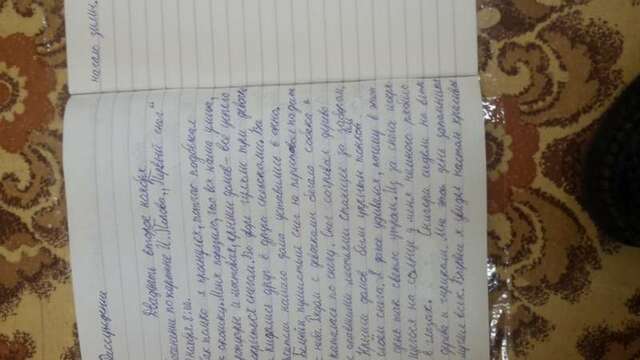 Рассуждение
Двадцать второе ноября
Сочинение по картине И. Попова „Первый снег"
ноября.
Как только я проснулся, тотчас подбежал
к окошку. Меня поразило, что вся наша улица,
тротуары и мостовая, крыши домов - всё успело
покрыться снегом. Во дворе гуляли три девочки
и кидались друг в друга снежками. Все
жители нашего дома уставились в окна.
Белый, пушистый снег не переставал падать
с неба. Рядом с девочками бегала собака и
каталась по снегу. Снег согревал дерево
с опавшими листьями стоящее за забором.
Крыши домов были укрыты тонким
слоем снега. Я даже удивился, почему в этот
день так светло утром. Из за снега искря
щегося на солнце у меня немного рябило
в глазах. Снегири сидели на ветке
дерева и чирикали. Мне этот день запомнился
лучше всех. Впервые я увидел настолько красивое
начало зимы.